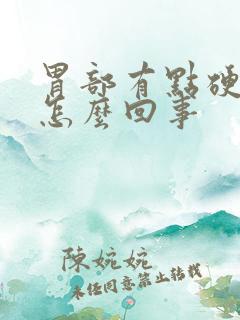 胃部有點硬
怎麼回事
陳婉婉
未经同意禁止转载